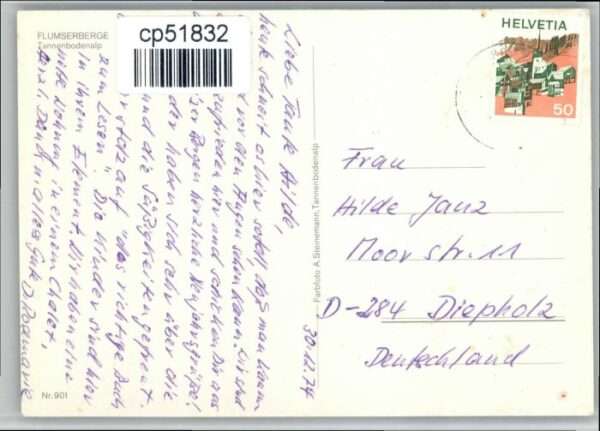 FLUMSERBERGE
Tannenbodenalp
cp51832
HELVETIA
50
Liebe Tante Hilde,
heute schneit es hier so toll, daß man kaum
vor den Augen sehen kann. Wir sind
zufrieden hier und schicken Dir aus
Bergen herzliche Neujahrsgrüße!
der haben sich sehr über die
und die Süßigkeiten gefreut.
stolz auf "das richtige Buch
zum Lesen". Die Kinder sind hier
in ihrem Element. Wir haben eine
nette Wohnung in einem Chalet.
Dank u. alles Gute
30.12.74
Farbfoto A. Steinemann, Tannenbodenalp
Frau
Hilde Janz
Moorstr. 11
D-284 Diepholz
Deutschland
Nr. 901